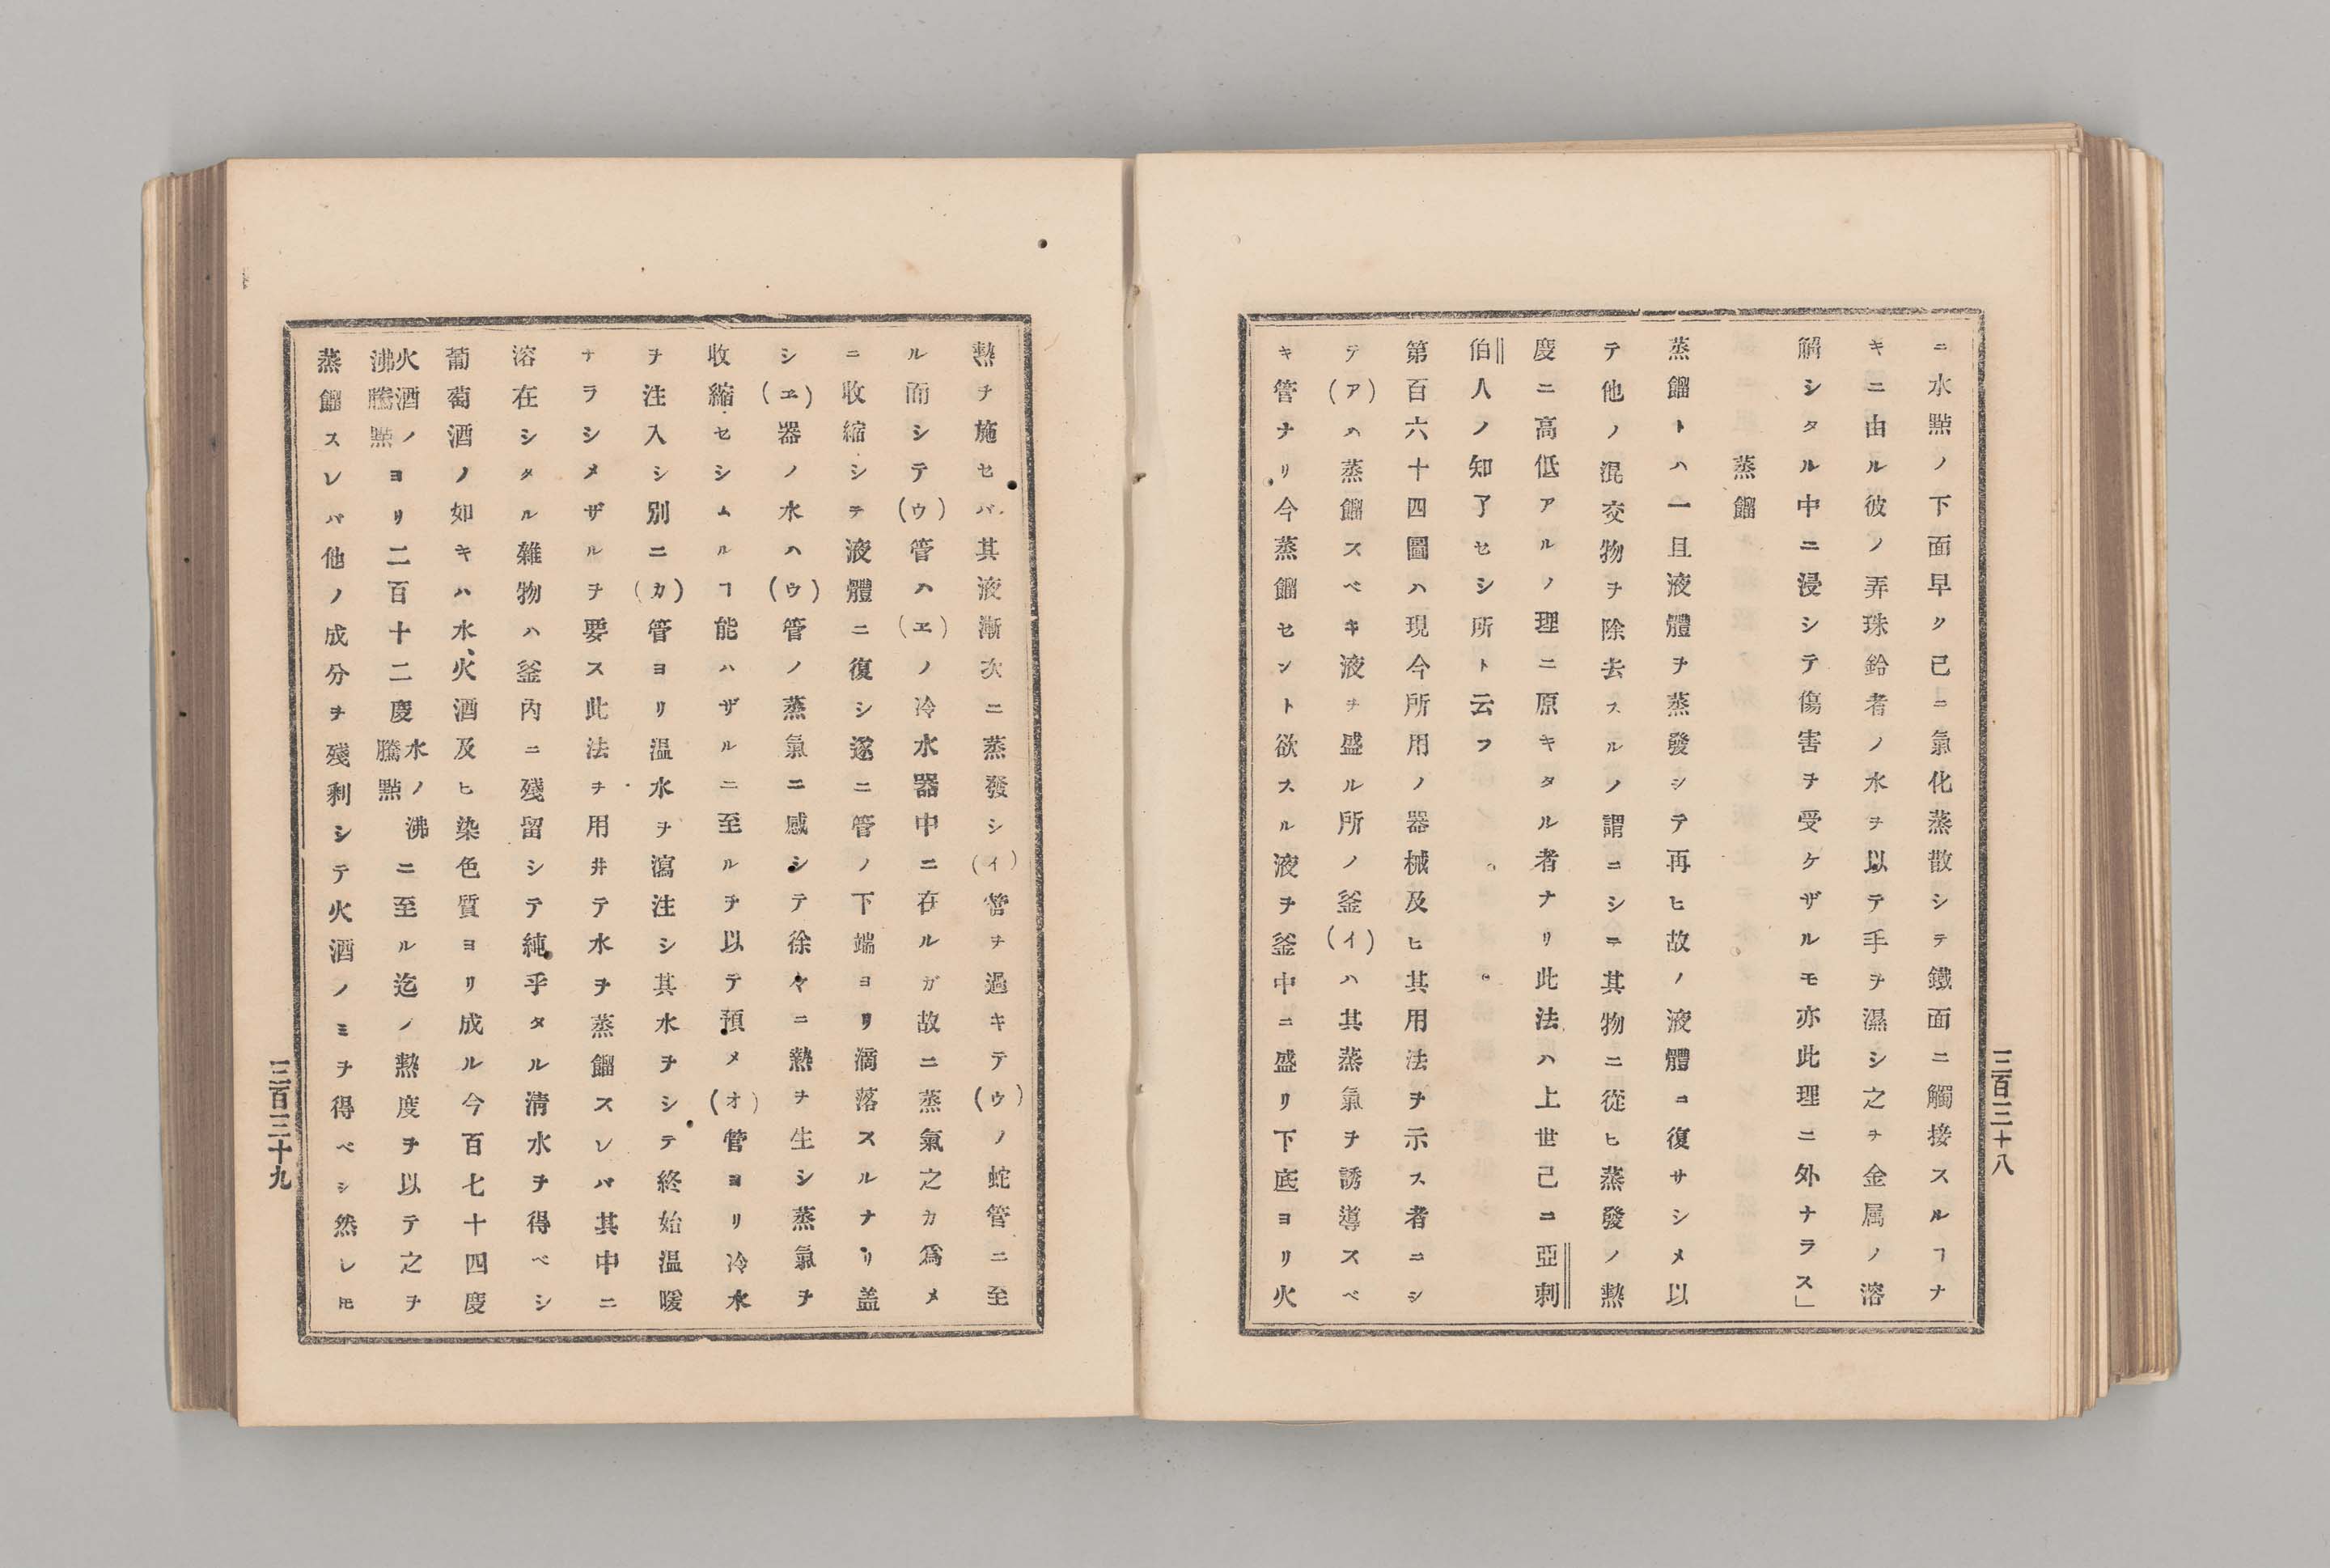 ニ水點ノ下面早ク已ニ氣化蒸散シテ鐵面ニ觸接スルヿナ
キニ由ル彼ノ弄珠鈴者ノ水ヲ以テ手ヲ濕シ之ヲ金属ノ溶
解シタル中ニ浸シテ傷害ヲ受ケザルモ亦此理ニ外ナラス」
蒸餾
蒸餾トハ一且液體ヲ蒸發シテ再ヒ故ノ液體ニ復サシメ以
テ他ノ混交物ヲ除去スルノ謂ニシニ其物ニ從ヒ蒸發ノ熱
度ニ高低アルノ理ニ原キタル者ナリ此法ハ上世已ニ亞剌
伯人ノ知了セシ所ト云フ
第百六十四圖ハ現今所用ノ器械及ヒ其用法ヲ示ス者ニシ
テ(ア)ハ蒸餾スベキ液ヲ盛ル所ノ釜(イ)ハ其蒸氣ヲ誘導スベ
キ管ナリ今蒸餾セント欲スル液ヲ釜中ニ盛リ下底ヨリ火
三百三十八
熱ヲ施セバ其液漸次ニ蒸發シ(イ)管ヲ過キテ(ウ)ノ蛇管ニ至
ル而シテ(ウ)管ハ(ヱ)ノ冷水器中ニ在ルガ故ニ蒸氣之カ爲メ
ニ收縮シテ液體ニ復シ遂ニ管ノ下端ヨリ滴落スルナリ盖
シ(ヱ)器ノ水ハ(ウ)管ノ蒸氣ニ感シテ徐々ニ熱ヲ生シ蒸氣ヲ
收縮セシムルヿ能ハザルニ至ルヲ以テ預メ(オ)管ヨリ冷水
ヲ注入シ別ニ(カ)管ヨリ温水ヲ瀉注シ其水ヲシテ終始温暖
ナラシメザルヲ要ス此法ヲ用井テ水ヲ蒸餾スレバ其中ニ
溶在シタル雜物ハ釜内ニ殘留シテ純乎タル淸水ヲ得ベシ
葡萄酒ノ如キハ水、火酒及ヒ染色質ヨリ成ル今百七十四度
火酒ノ沸騰點ヨリ二百十二度水ノ沸騰點ニ至ル迄ノ熱度ヲ以テ之ヲ
蒸餾スレバ他ノ成分ヲ殘剩シテ火酒ノミヲ得ベシ然レ𪜈
三百三十九